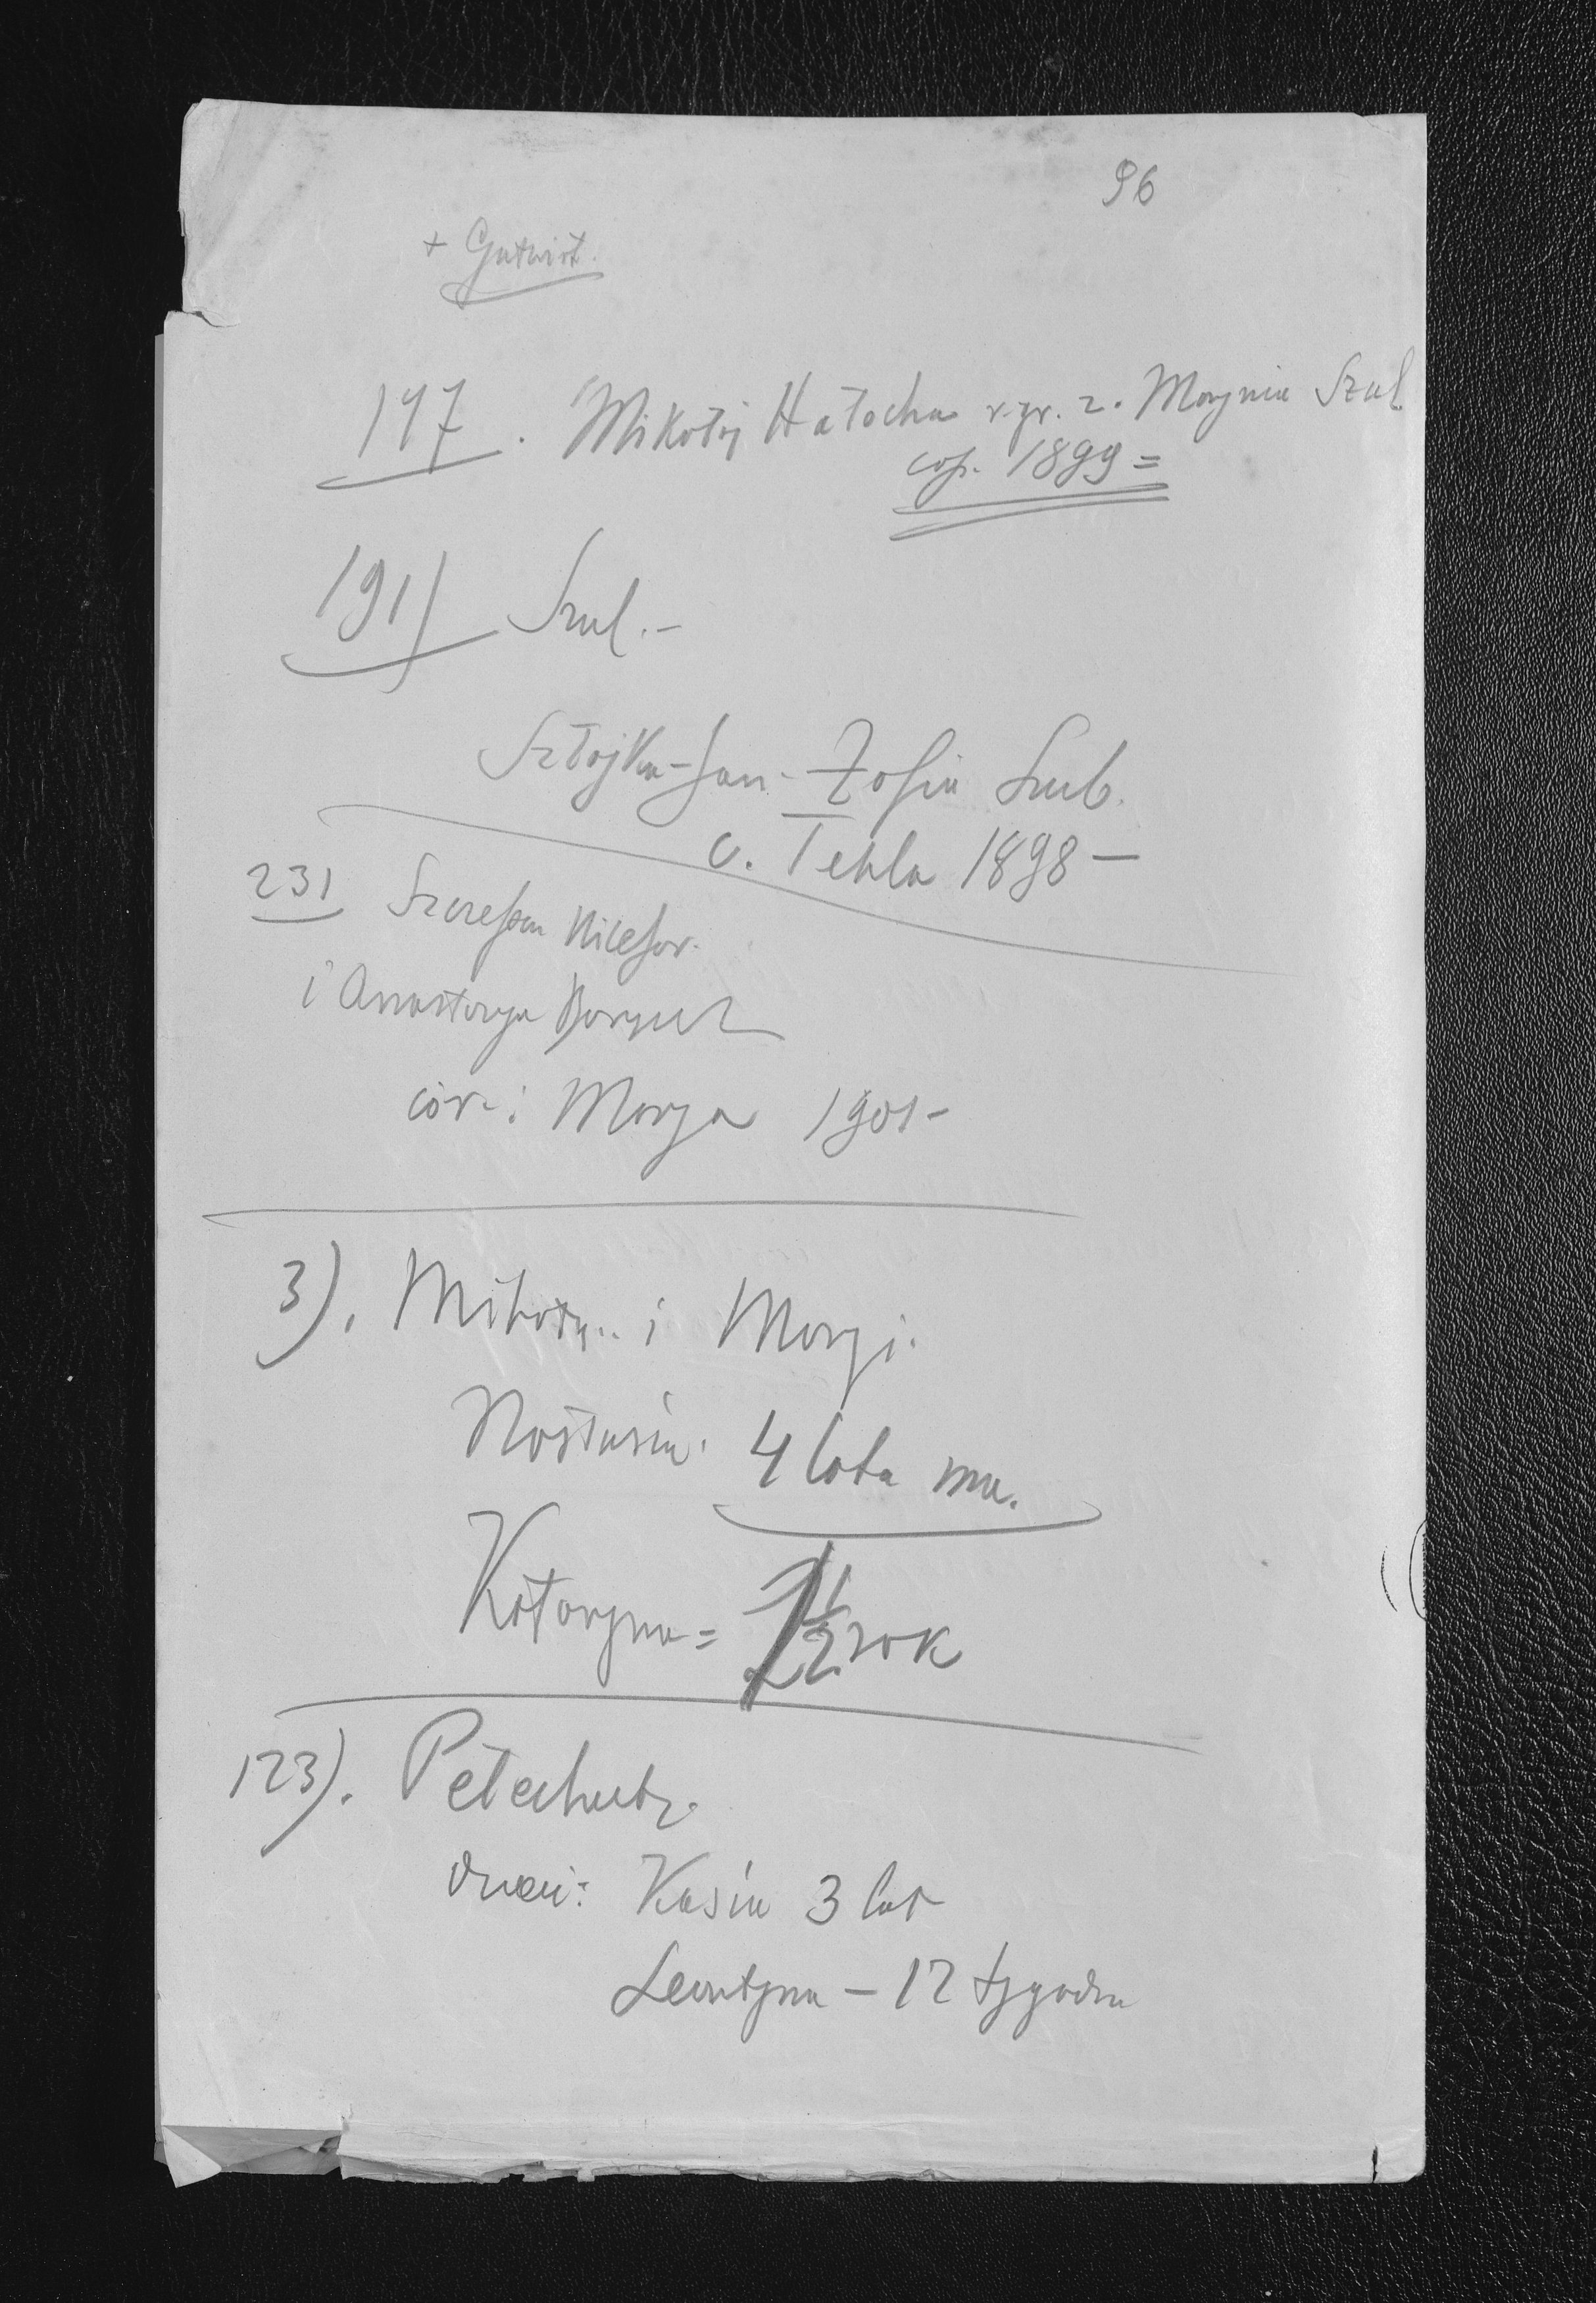 96
+ Gutwirt.
197. Mikołaj Hałocha r. gr. z. Marynia Szul.
cop. 1899 =
191) Szul. -
Sztojka - Jan - Zofia Szul.
c. Tekla 1898 -
231 Nicefor.
i Anastazya
cór.: Marya 1901 -
3). Mikołaj.. i Maryi.
Nastusia. 4 lata ma.
Kataryna = 1/2 rok
123).
dzieci: Kasia 3 lat
Leontyna - 12 tygodn